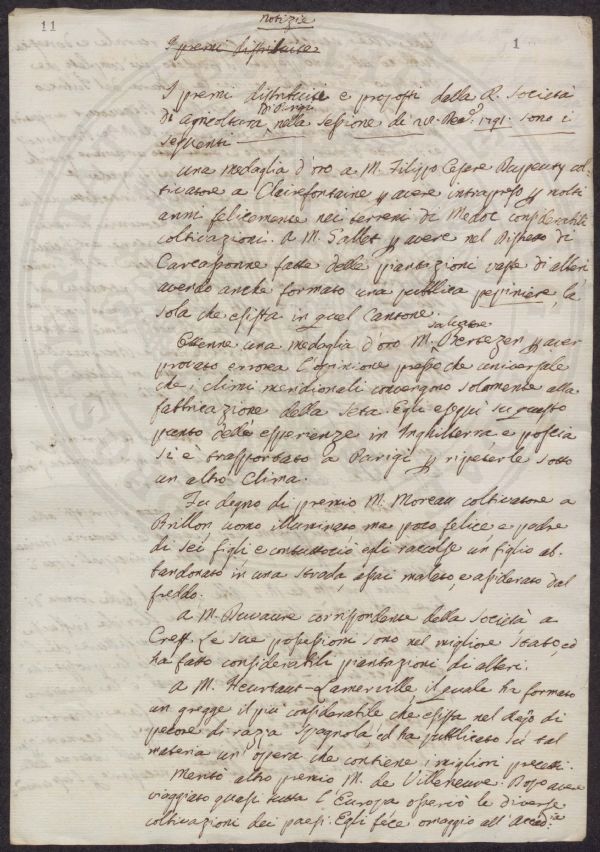 Notizie
11
1
I premi distribuiti
I premi distribuiti e proposti dalla R. Società
di Agricoltura di Parigi nella sessione di 28. Xbre. 1791. sono i
seguenti
Una medaglia d'oro a M. Filippo Cesare col-
tivatore a Clairefontaine p avere intrapreso p molti
anni felicemente nei terreni di Medoc considerabili
coltivazioni. A M. Sallet p avere nel Distretto di
Carcassonne fatte delle piantazioni vaste di alberi
avendo anche formato una pubblica pepiniere, la
sola che esista in quel Cantone.
Ottenne una medaglia d'oro M. p aver
provato erronea l'opinione presso che universale
che i climi meridionali convengono solamente alla
fabbricazione della seta. Egli eseguì su questo
punto delle esperienze in Inghilterra e poscia
si è trasportato a Parigi p ripeterle sotto
un altro clima.
Fu degno di premio M. Moreau coltivatore a
Brillon uomo illuminato ma poco felice e padre
di sei figli e contuttociò egli raccolse un figlio ab-
bandonato in una strada, assai malato, e assiderato dal
freddo.
A M. Duvaure corrispondente della Società a
Crest. Le sue possessioni sono nel migliore stato, ed
ha fatto considerabili piantazioni di alberi.
A M. Heurtaut-Lamerville il quale ha formato
un gregge il più considerabile che esista nel Regno di
pecore di razza Spagnola, ed ha pubblicato su tal
materia un'opera che contiene i migliori precetti.
Meritò altro premio M. de Villeneuve. Dopo avere
viaggiato quasi tutta l'Europa osservò le diverse
coltivazioni dei paesi. Egli fece omaggio all'Accad.ia